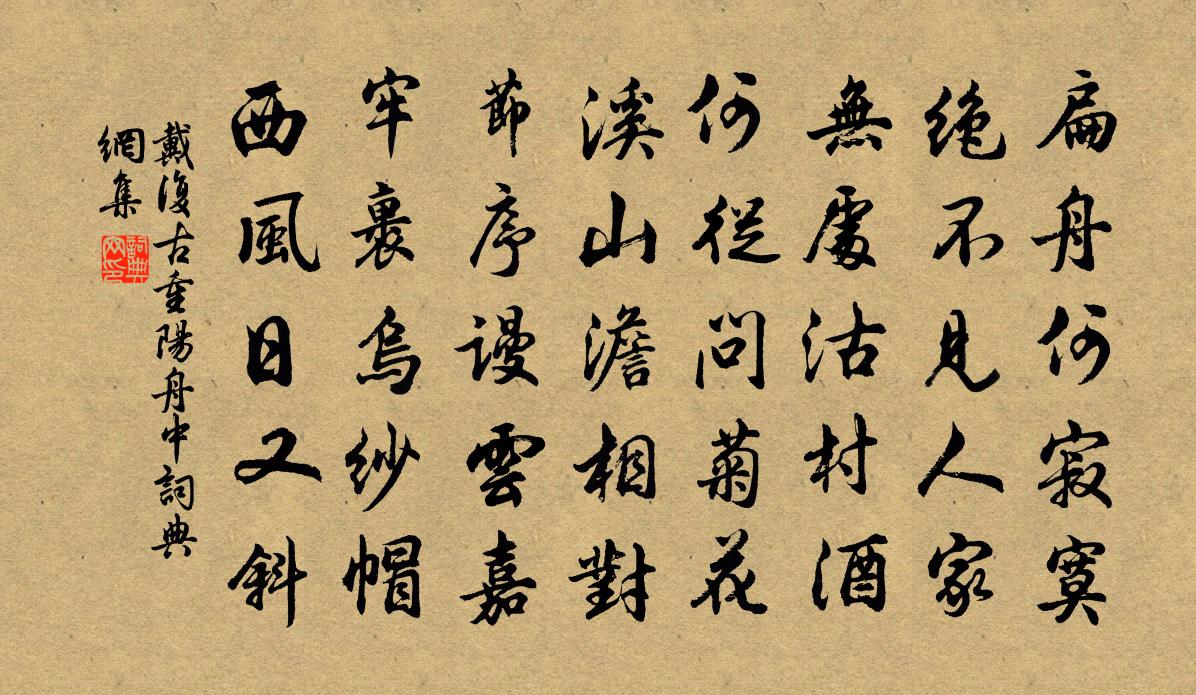 扁舟何寂寞
絶不見人家
無處沽村酒
何從問菊花
溪山澹相對
節序謾雲嘉
牢裹烏紗帽
西風日又斜
戴復古重陽舟中詞典
網集
詞典網印